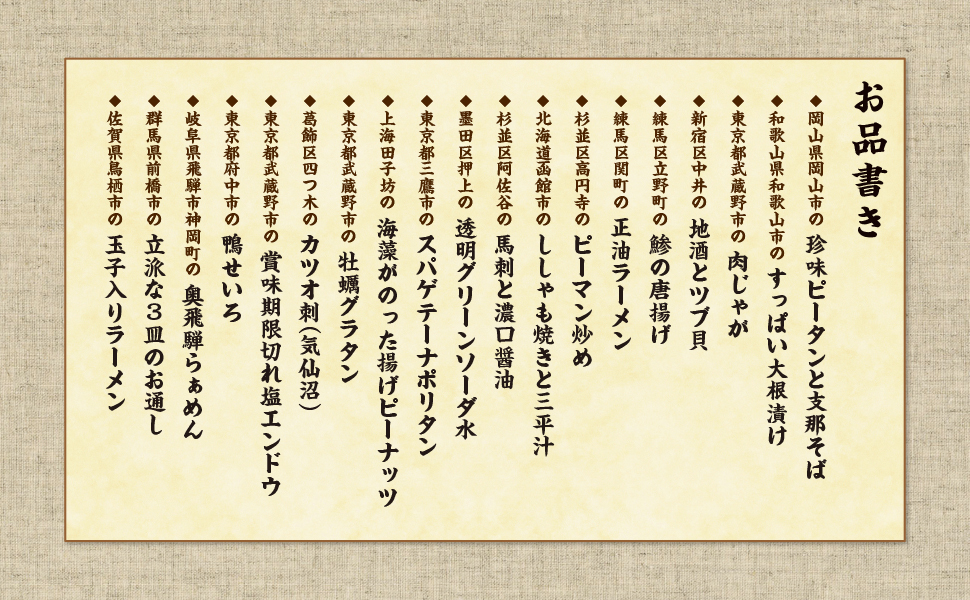 お品書き
◆岡山県岡山市の 珍味ピータンと支那そば
◆和歌山県和歌山市の すっぱい大根漬け
◆東京都武蔵野市の 肉じゃが
◆新宿区中井の 地酒とツブ貝
◆練馬区立野町の 鯵の唐揚げ
◆練馬区関町の 正油ラーメン
◆杉並区高円寺の ピーマン炒め
◆北海道函館市の ししゃも焼きと三平汁
◆杉並区阿佐谷の 馬刺と濃口醤油
◆墨田区押上の 透明グリーンソーダ水
◆東京都三鷹市の スパゲテーナポリタン
◆上海田子坊の 海藻がのった揚げピーナッツ
◆東京都武蔵野市の 牡蠣グラタン
◆葛飾区四つ木の カツオ刺(気仙沼)
◆東京都武蔵野市の 賞味期限切れ塩エンドウ
◆東京都府中市の 鴨せいろ
◆岐阜県飛騨市神岡町の 奥飛騨らぁめん
◆群馬県前橋市の 立派な3皿のお通し
◆佐賀県鳥栖市の 玉子入りラーメン